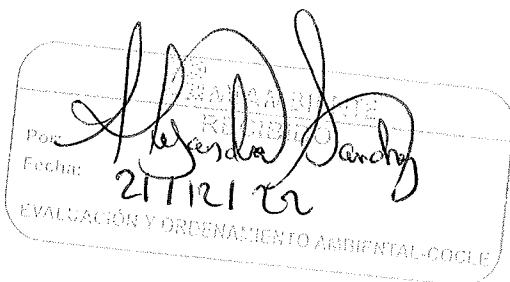 MIAMBIENTE
RECIBIDO
Por: Alejandra Sanchez
Fecha: 21/12/22
EVALUACIÓN Y ORDENAMIENTO AMBIENTAL-COCLE